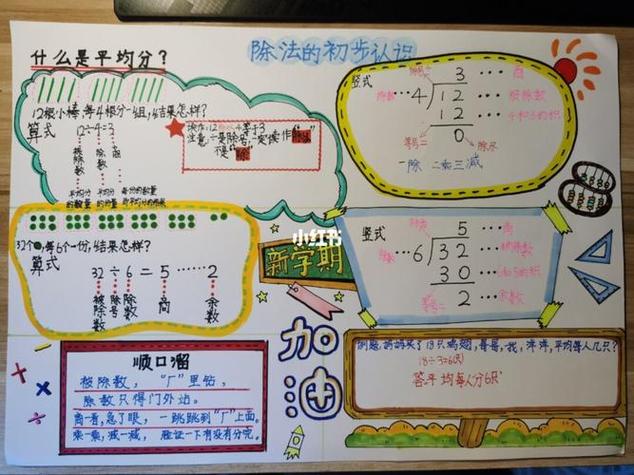 除法的初步认识
什么是平均分？
12根小棒，每4根分一组，结果怎样？
算式
12÷4=3
被除数
除号
除数
商
读作：12除以4等于3
注意：÷是除号，一定读作"除以"
不是"除"
竖式
除号
3 … 商
除数 … 4
12 … 被除数
12 … 4和3的积
等号
0
除尽
一除 二乘 三减
32个，每6个一份，结果怎样？
算式
32÷6=5……2
被除数
除号
除数
商
余数
小红书
新学期
加油
竖式
除号
5 … 商
除数 … 6
32 … 被除数
30 … 6和5的积
等号
2 … 余数
顺口溜
被除数，"厂"里站，
除数只得门外站。
商一看，急了眼，一跳跳到"厂"上面。
乘一乘，减一减，验证一下有没有分完。
例题：妈妈买了18只鸡翅，哥哥，我，洋洋，平均每人几只？
18÷3=6(只)
答：平均每人分6只